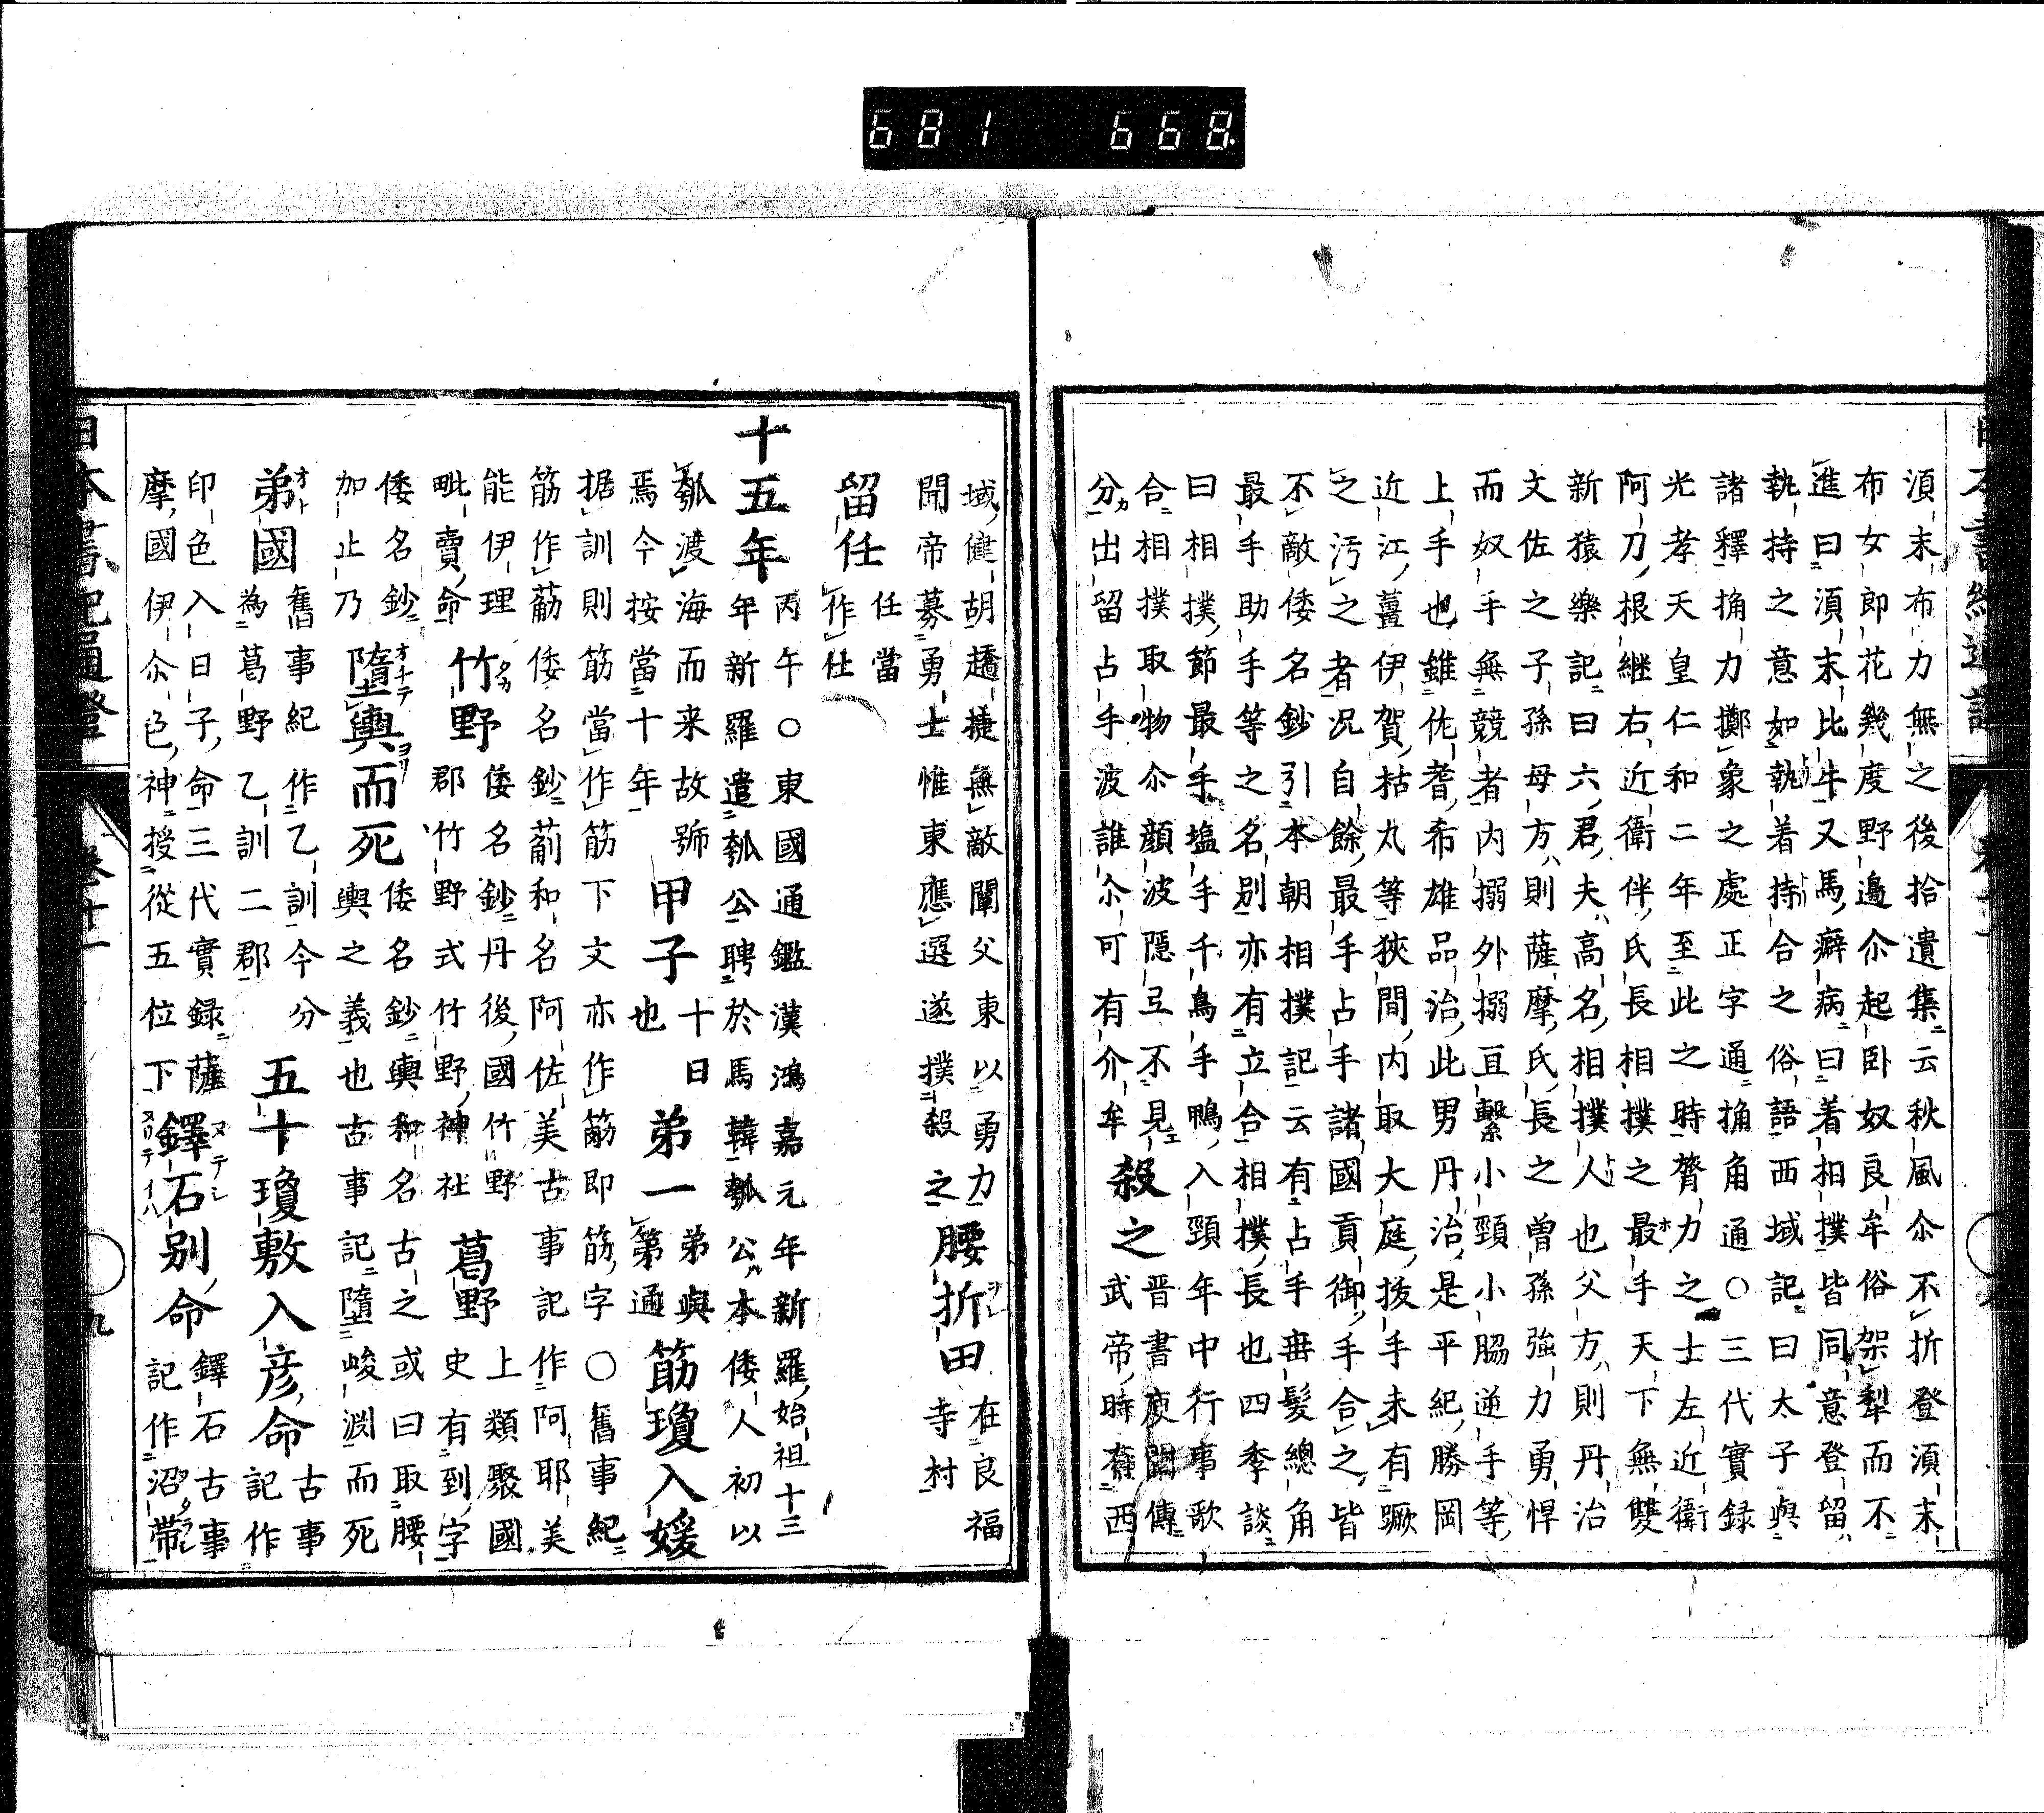 681 668
須末布力無之後拾遺集云秋風尒不折登須末
布女郎花幾度野邊尒起卧奴良牟俗架犁而不
進曰須末比牛又馬癖病曰着相撲皆同意登留
執持之意如執着持合之俗語西域記曰太子與
諸釋捔力擲象之處正字通捔角通〇三代實録
光孝天皇仁和二年至此之時膂力之士左近衛
阿刀根継右近衛伴氏長相撲之最手天下無雙
新猿樂記曰六君夫高名相撲人也父方則丹治
文佐之子孫母方則薩摩氏長之曽孫強力勇悍
而奴手無競者内搦外搦亘繋小頸小脇逆手等
上手也雖佐耆希雄品治此男丹治是平紀勝岡
近江薑伊賀枯丸等狹間内取大庭抜手未有蹶
之汚之者况自餘最手占手諸國貢御手合之皆
不敵倭名鈔引本朝相撲記云有占手垂髪總角
最手助手等之名別亦有立合相撲長也四季談
曰相撲節最手塩手千鳥手鴨入頸年中行事歌
合相撲取物尒顔波隠弖不見晋書庾闡傳
分出留占手波誰尒可有介牟殺之武帝時有西
域健胡趫捷無敵闡父東以勇力
聞帝募勇士惟東應選遂撲殺之腰折田在良福
寺村
留任任當
作仕
十五年丙午〇東國通鑑漢鴻嘉元年新羅始祖十三
年新羅遣瓠公聘於馬韓瓠公本倭人初以
瓠渡海而来故號甲子十日弟一弟與筋瓊入媛
焉今按當十年也第通
据訓則筋當作筋下文亦作筋即筋字〇舊事紀
筋作荕倭名鈔葪和名阿佐美古事記作阿耶美
能伊理竹野倭名鈔丹後國竹野葛野上類聚國
毗賣命郡竹野式竹野神社史有到字
倭名鈔墮輿而死倭名鈔輿和名古之或曰取腰
加止乃輿之義也古事記墮峻淵而死
弟國舊事紀作乙訓今分五十瓊敷入彦命古事
為葛野乙訓二郡記作
印色入日子命三代實録薩鐸石別命鐸石古事
摩國伊尒色神授從五位下記作沼帯
日本書紀通證
卷十一
九